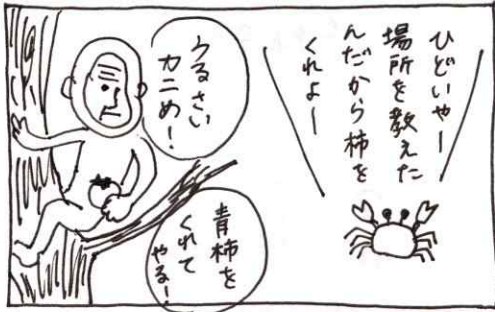 ひどいやー
場所を教えた
んだから柿を
くれよー
うるさい
カニめ!
青柿を
くれて
やる!